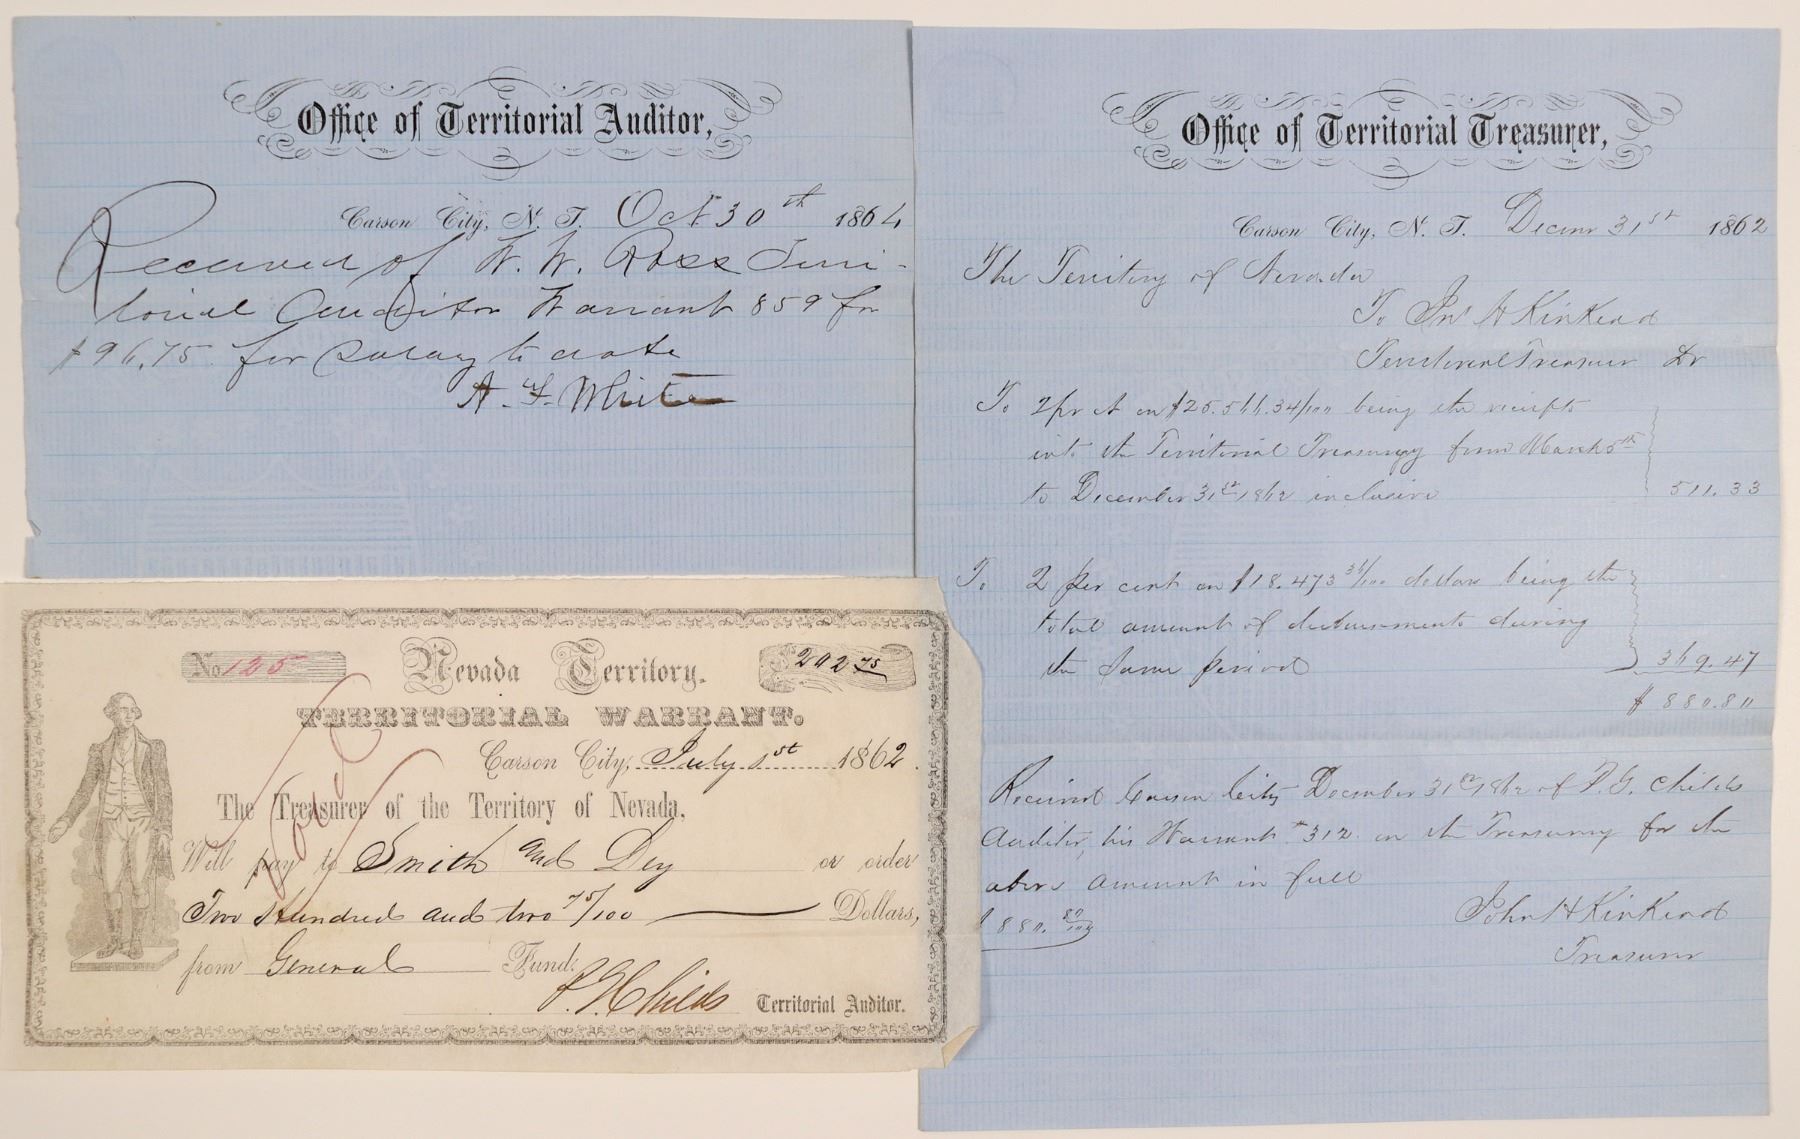 Office of Territorial Auditor,
Carson City, N. T. Oct 30th 1864
Received of W. W. Ross Terri-
torial Auditor Warrant 859 for
$96.75 for Salary to date
A. F. White
Office of Territorial Treasurer,
Carson City, N. T. Decemr 31st 1862
The Territory of Nevada
To Jno H Kinkead
Territorial Treasurer Dr
To 2 pr ct on $25.566.34/100 being the receipts
into the Territorial Treasury from March 5th
to December 31st 1862 inclusive 511.33
To 2 per cent on $18.473 36/100 dollars being the
total amount of disbursements during
the same period 369.47
$ 880.80
Received Carson City December 31st 1862 of P. G. Childs
Auditor, his Warrant #312 on the Treasury for the
above amount in full
$ 880. 80/100
John H Kinkead
Treasurer
No. 125 Nevada Territory. 202 75
TERRITORIAL WARRANT.
Carson City, July 1st 1862.
The Treasurer of the Territory of Nevada,
Will pay to Smith and Dey or order
Two Hundred and two 75/100 Dollars,
from General Fund.
P. G. Childs Territorial Auditor.